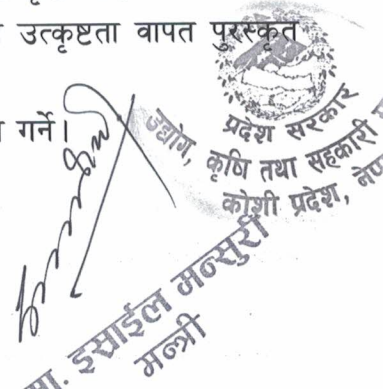 उत्कृष्टता वापत पुरस्कृत
गर्ने।
प्रदेश सरकार
उद्योग, कृषि तथा सहकारी
कोशी प्रदेश,
मा. इस्राईल मन्सुरी
मन्त्री